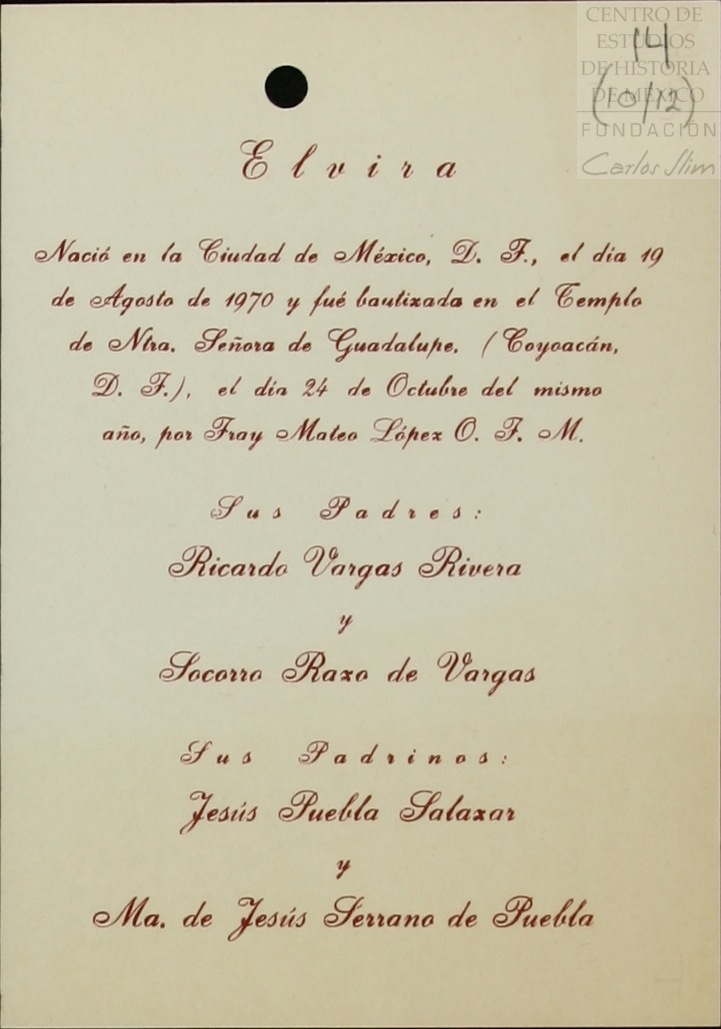 CENTRO DE
ESTUDIOS
DE HISTORIA
DE MÉXICO
FUNDACIÓN
Carlos Slim
14
(10/12)
Elvira
Nació en la Ciudad de México, D. F., el día 19
de Agosto de 1970 y fué bautizada en el Templo
de Ntra. Señora de Guadalupe. (Coyoacán,
D. F.), el día 24 de Octubre del mismo
año, por Fray Mateo López O. F. M.
Sus Padres:
Ricardo Vargas Rivera
y
Socorro Razo de Vargas
Sus Padrinos:
Jesús Puebla Salazar
y
Ma. de Jesús Serrano de Puebla